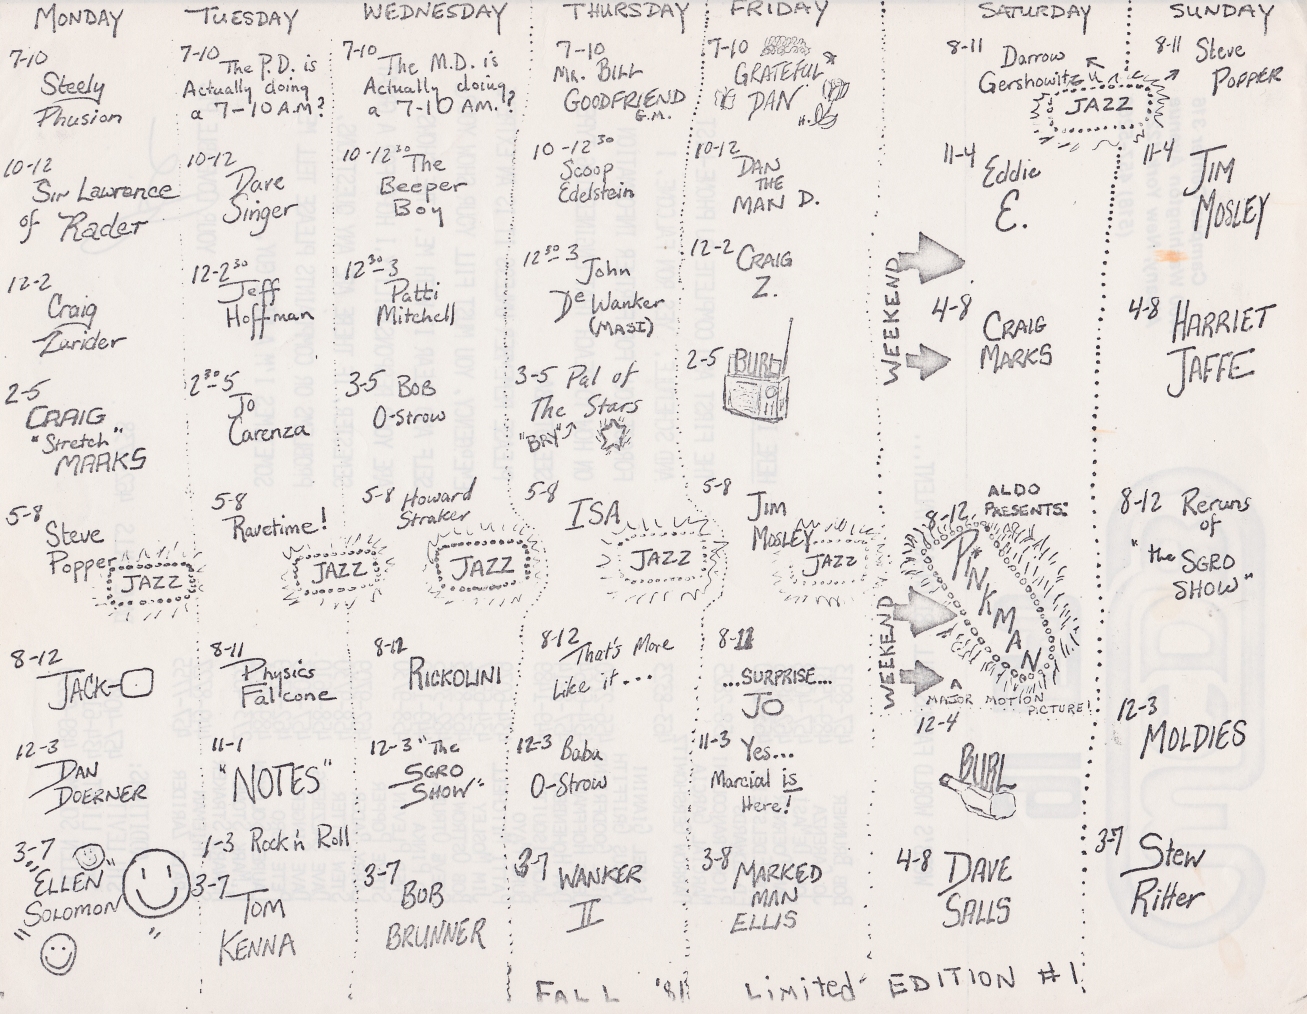 MONDAY
7-10
Steely
Phusion
10-12
Sir Lawrence
of Rader
12-2
Craig
Zurider
2-5
CRAIG
"Stretch"
MARKS
5-8
Steve
Popper
JAZZ
8-12
JACK-O
12-3
DAN
DOERNER
3-7
"ELLEN"
SOLOMON
TUESDAY
7-10
The P.D. is
Actually doing
a 7-10 A.M?
10-12
Dave
Singer
12-2³⁰
Jeff
Hoffman
2³⁰-5
Jo
Carenza
5-8
Ravetime!
JAZZ
8-11
Physics
Falcone
11-1
"NOTES"
1-3 Rock n' Roll
3-7
Tom
KENNA
WEDNESDAY
7-10
The M.D. is
Actually doing
a 7-10 AM.?
10-12³⁰ The
Beeper
Boy
12³⁰-3
Patti
Mitchell
3-5 BOB
O-Strow
5-8 Howard
Straker
JAZZ
8-12
RICKOLINI
12-3 "The
SGRO
SHOW"
3-7
BOB
BRUNNER
THURSDAY
7-10
MR. BILL
GOODFRIEND
G.M.
10-12³⁰
Scoop
Edelstein
12³⁰-3
John
De Wanker
(MASI)
3-5 Pal of
The Stars
"BRY"
5-8
ISA
JAZZ
8-12
That's More
Like it...
12-3 Baba
O-Strow
3-7 WANKER
II
FRIDAY
7-10
GRATEFUL
DAN
H.
10-12
DAN
THE
MAN D.
12-2 CRAIG
Z.
2-5 BURL
5-8
Jim
Mosley
JAZZ
8-11
...SURPRISE...
JO
11-3 Yes...
Marcial is
Here!
3-8 MARKED
MAN
ELLIS
WEEKEND
WEEKEND
SATURDAY
8-11 Darrow
Gershowitz
JAZZ
11-4
Eddie
E.
4-8
CRAIG
MARKS
ALDO
PRESENTS:
8-12
PINKMAN
A
MAJOR MOTION
PICTURE!
12-4
BURL
4-8 DAVE
SALLS
SUNDAY
8-11 Steve
POPPER
11-4
JIM
MOSLEY
4-8 HARRIET
JAFFE
8-12 Reruns
of
"the SGRO
SHOW"
12-3
MOLDIES
3-7
Stew
Ritter
FALL '81 Limited EDITION #1